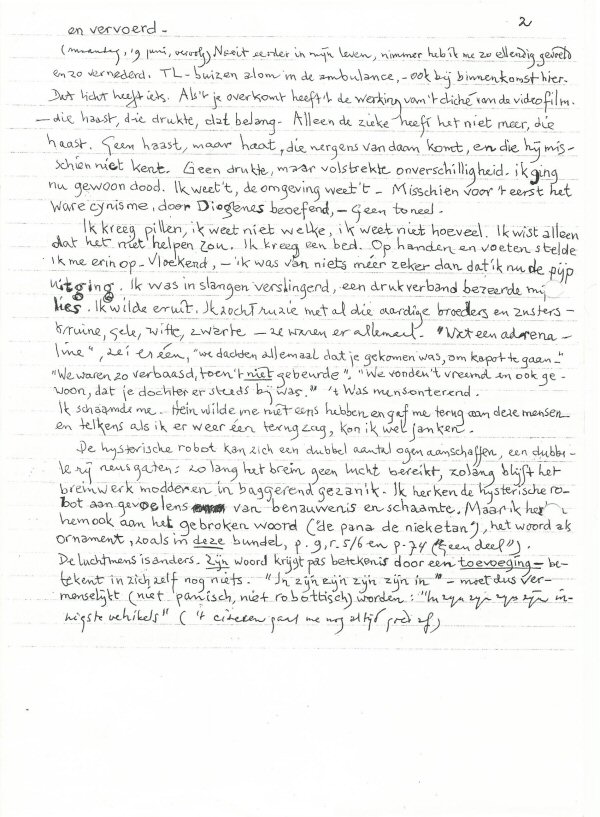 2
en vervoerd -
(maandag, 19 juni, vervolg) Nooit eerder in mijn leven, nimmer heb ik me zo ellendig gevoeld
en zo vernederd. TL-buizen alom in de ambulance, - ook bij binnenkomst hier.
Dat licht heeft iets. Als 't je overkomt heeft 't de werking van 't cliché van de videofilm.
- die haast, die drukte, dat belang. Alleen de zieke heeft het niet meer, die
haast. Geen haast, maar haat, die nergens vandaan komt, en die hij mis-
schien niet kent. Geen drukte, maar volstrekte onverschilligheid. ik ging
nu gewoon dood. Ik weet 't, de omgeving weet 't - Misschien voor 't eerst het
ware cynisme, door Diogenes beoefend, - Geen toneel.
Ik kreeg pillen, ik weet niet welke, ik weet niet hoeveel. Ik wist alleen
dat het niet helpen zou. Ik kreeg een bed. Op handen en voeten stelde
ik me erin op - vloekend, - ik was van niets méér zeker dan dat ik nu de pijp
uitging. Ik was in slangen verslingerd, een drukverband bezeerde mij
lies. Ik wilde eruit. Ik zocht ruzie met al die aardige broeders en zusters -
bruine, gele, witte, zwarte - ze waren er allemaal. "Wat een adrena-
line", zei er één, "we dachten allemaal dat je gekomen was, om kapot te gaan -"
"We waren zo verbaasd, toen 't niet gebeurde". "We vonden 't vreemd en ook ge-
woon, dat je dochter er steeds bij was." 't Was mensonterend.
Ik schaamde me. Hein wilde me niet eens hebben en gaf me terug aan deze mensen
en telkens als ik er weer één terugzag, kon ik wel janken.
De hysterische robot kan zich een dubbel aantal ogen aanschaffen, een dubbe-
le rij neusgaten: zolang het brein geen lucht bereikt, zolang blijft het
breinwerk modderen in baggerend gezanik. Ik herken de hysterische ro-
bot aan gevoelens van benauwenis en schaamte. Maar ik herken
hem ook aan het gebroken woord ("de pana de nieketan"), het woord als
ornament, zoals in deze bundel, p. 9, r. 5/6 en p. 74 ("Geen deel").
De luchtmens is anders. Zijn woord krijgt pas betekenis door een toevoeging - be-
tekent in zichzelf nog niets. "In zijn zijn zijn zijn in" - moet dus ver-
menselijkt (niet panisch, niet robottisch) worden: "In zijn zijn zijn zijn in-
nigste vehikels" ('t citeren gaat me nog altijd goed af)